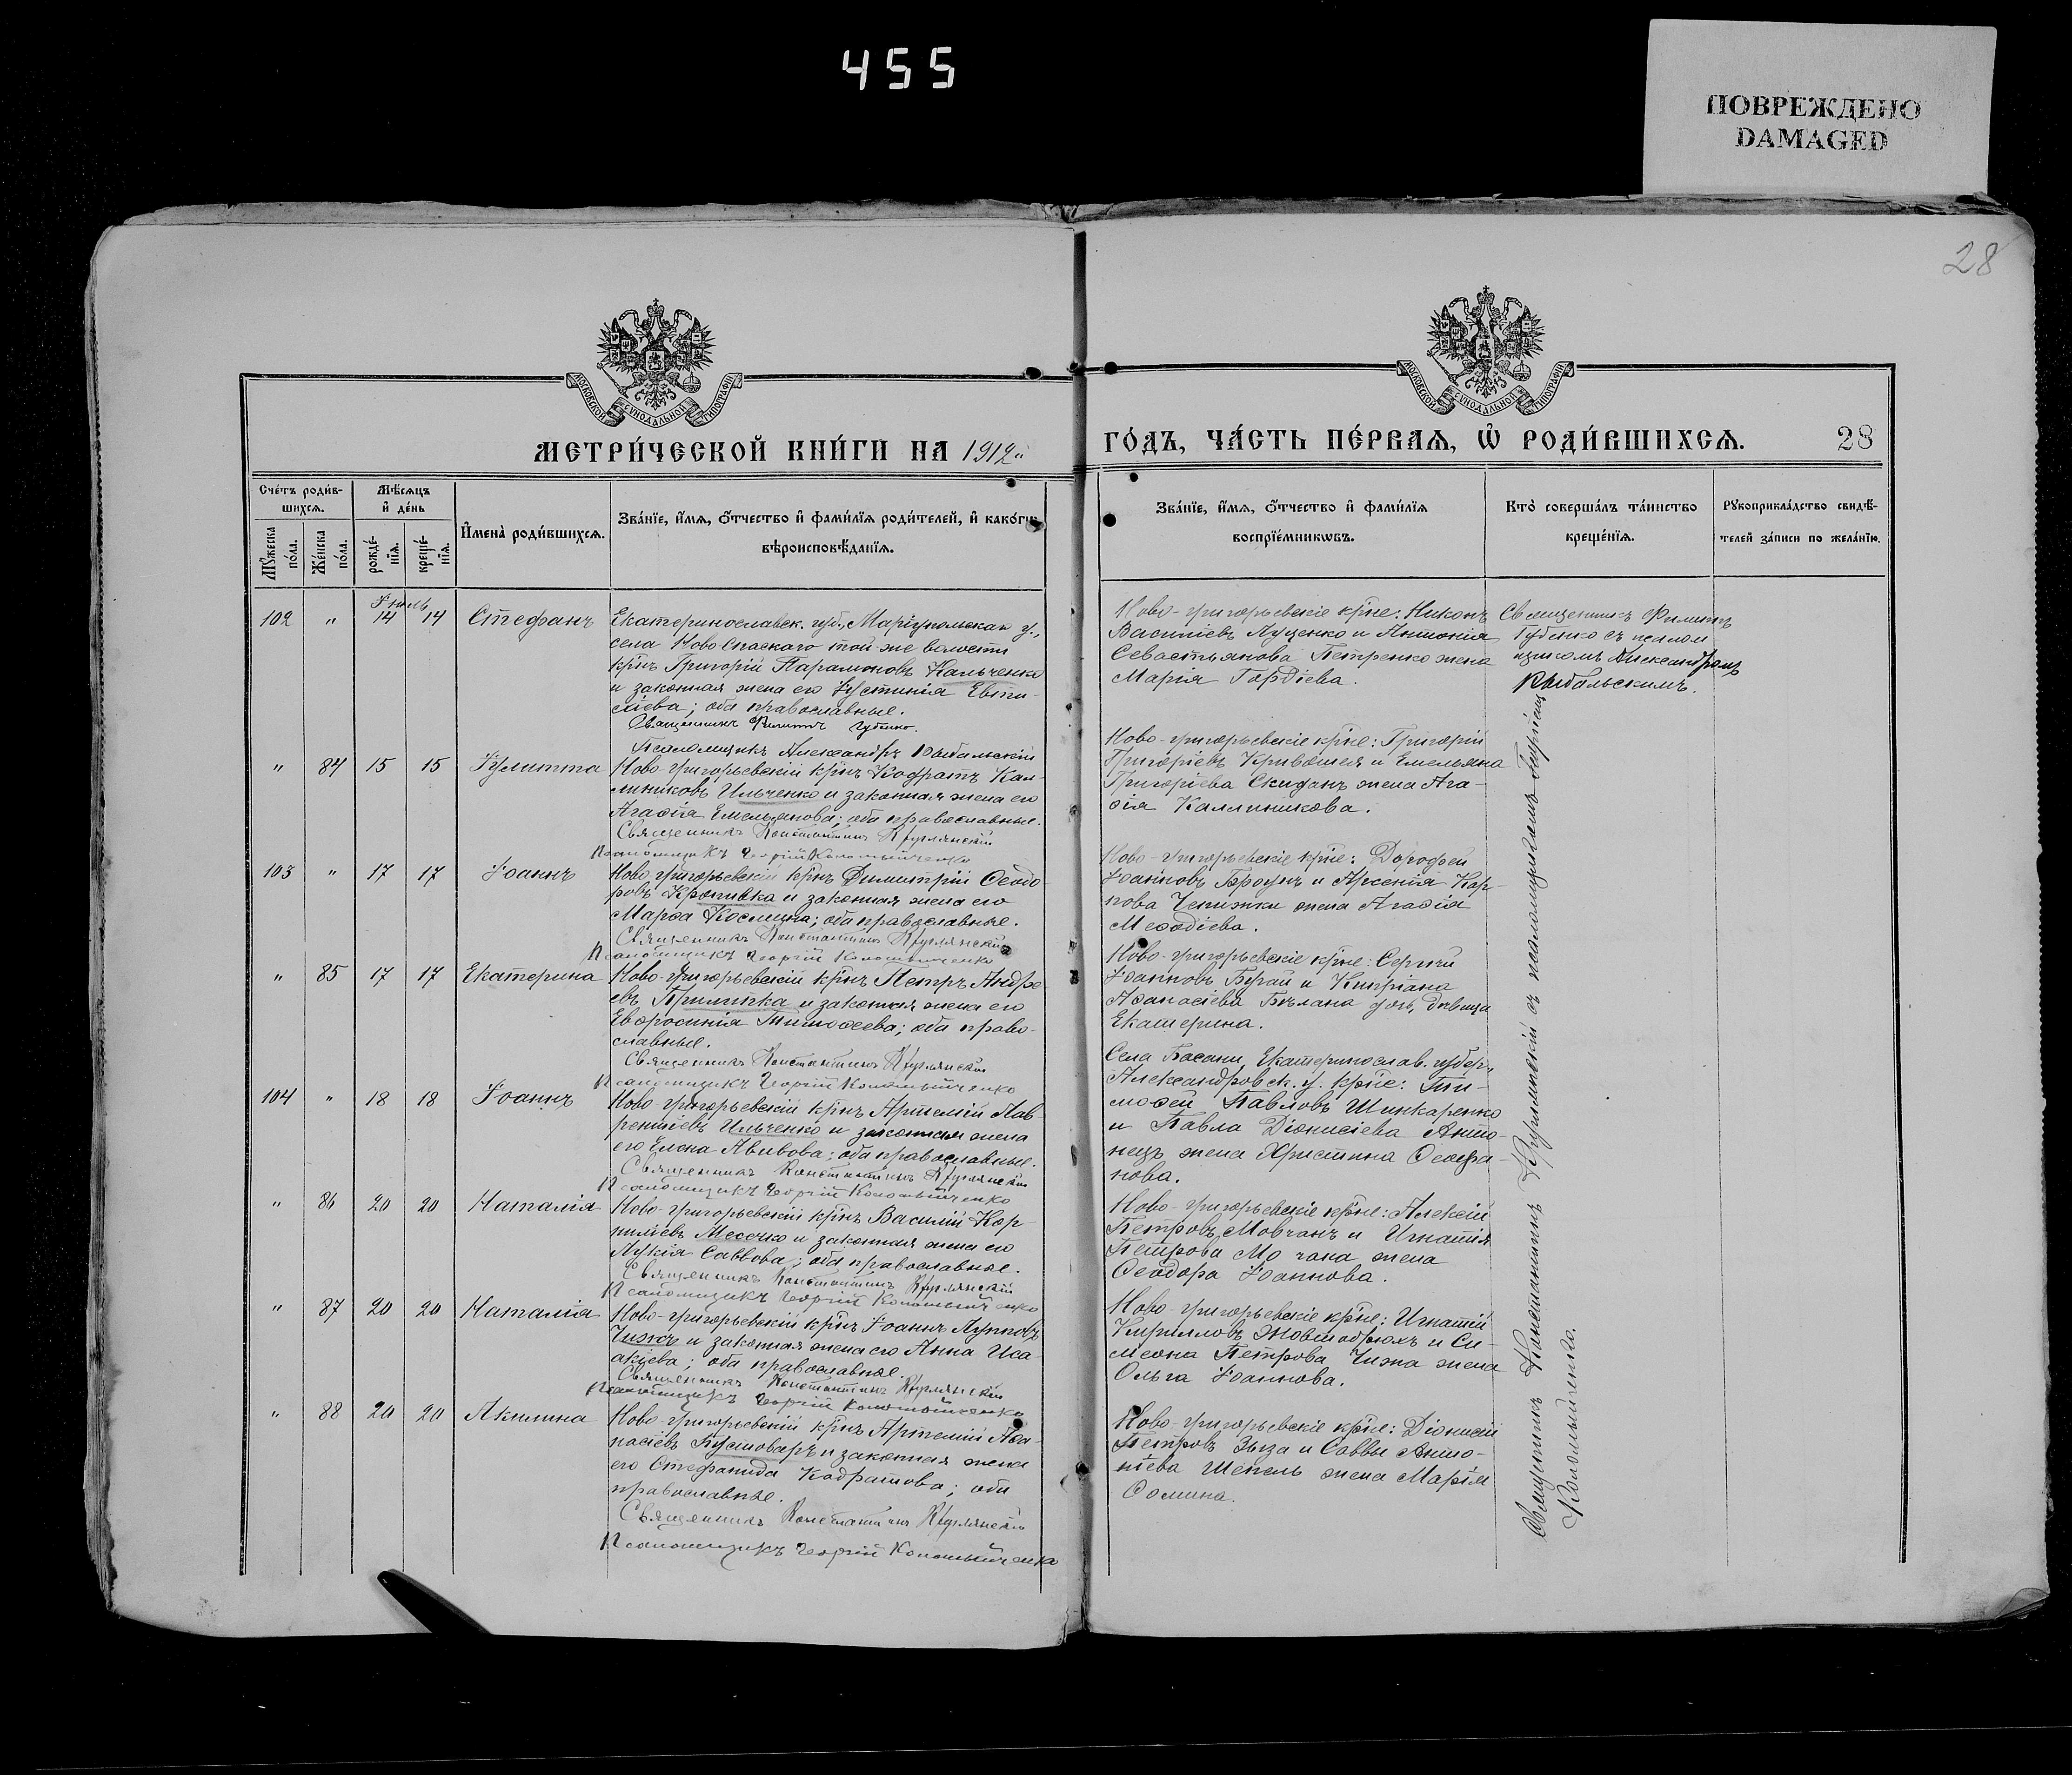 455
ПОВРЕЖДЕНО
DAMAGED
28
МОСКОВСКОЙ СѴНОДАЛЬНОЙ ТИПОГРАФІИ
МОСКОВСКОЙ СѴНОДАЛЬНОЙ ТИПОГРАФІИ
МЕТРИ́ЧЕСКОЙ КНИ́ГИ НА 1912
ГО́ДЪ, ЧА́СТЬ ПЕ́РВАѦ, Ѽ РОДИ́ВШИХСѦ.
28
Сче́тъ роди́в-
шихсѧ.
Мꙋжеска по́ла.
Же́нска по́ла.
Мѣ́сѧцъ
и҆ де́нь
рожде́-
нїѧ.
креще́-
нїѧ.
И҆мена̀ роди́вшихсѧ.
Зва́нїе, и҆́мѧ, ѻ҆́тчество и҆ фами́лїѧ роди́телей, и҆ како́гѡ
вѣроисповѣ́данїѧ.
Зва́нїе, и҆́мѧ, ѻ҆́тчество и҆ фами́лїѧ
воспрїе́мникѡвъ.
Кто̀ соверша́лъ та́инство
креще́нїѧ.
Рꙋкоприкла́дство свидѣ́-
телей за́писи по жела́нїю.
Іюль
102 " 14 14 Стефанъ
Екатеринославск. губ., Маріупольскаго у.,
села Ново Спаскаго той-же волости
кр̃нъ Григорій Парамоновъ Кальченко
и законная жена его Іустинія Евти-
хіева; оба православные.
Священникъ Филиппъ Губенко.
Псаломщикъ Александръ Рыбальскій
Ново-григорьевскіе кр̃не: Никонъ
Василіевъ Луценко и Антонія
Севастьянова Петренко жена
Марія Гордіева.
Священникъ Филиппъ
Губенко съ псалом
щикомъ Александромъ
Рыбальскимъ.
" 84 15 15 Іулитта
Ново-григорьевскій кр̃нъ Кодратъ Кал-
линиковъ Ильченко и законная жена его
Агаѳія Емельянова; оба православные.
Священникъ Константинъ
Псаломщикъ Георгій Коломыйченко
Ново-григорьевскіе кр̃не: Григорій
Григоріевъ Кривошея и Емельяна
Григоріева Скиданъ жена Ага-
ѳія Каллиникова.
103 " 17 17 Іоаннъ
Ново григорьевскій кр̃нъ Димитрій Ѳеодо-
ровъ Кропивка и законная жена его
Марѳа Космина; оба православные.
Священникъ Константинъ
Псаломщикъ Георгій Коломыйченко
Ново-григорьевскіе кр̃не: Дороѳей
Іоанновъ Бровунъ и Арсенія Кар-
пова Чепижки жена Агаѳія
Меѳодіева.
" 85 17 17 Екатерина
Ново-григорьевскій кр̃нъ Петръ Андре-
евъ Примипка и законная жена его
Евфросинія Тимоѳеева; оба право-
славные.
Священникъ Константинъ
Псаломщикъ Георгій Коломыйченко
Ново-григорьевскіе кр̃не: Сергій
Іоанновъ Бугай и Кипріана
Аѳанасіева Бѣлана дочь, дѣвица
Екатерина.
104 " 18 18 Іоаннъ
Ново-григорьевскій кр̃нъ Артемій Лав-
рентіевъ Ильченко и законная жена
его Елена Авивова; оба православные.
Священникъ Константинъ
Псаломщикъ Георгій Коломыйченко
Села Басани, Екатеринослав. губер.,
Александровск. у. кр̃не: Ти-
моѳей Павловъ Шинкаренко
и Павла Діонисіева Анто-
нецъ жена Христина Ѳеофа-
нова.
" 86 20 20 Наталія
Ново-григорьевскій кр̃нъ Василій Кор-
ниліевъ Месечко и законная жена его
Лукія Саввова; оба православные.
Священникъ Константинъ
Псаломщикъ Георгій Коломыйченко
Ново-григорьевскіе кр̃не: Алексій
Петровъ Мовчанъ и Игнатія
Петрова Мовчана жена
Ѳеодора Іоаннова.
" 87 20 20 Наталія
Ново-григорьевскій кр̃нъ Іоаннъ Лупповъ
Чижъ и законная жена его Анна Иса-
акіева; оба православные.
Священникъ Константинъ
Псаломщикъ Георгій Коломыйченко
Ново-григорьевскіе кр̃не: Игнатій
Кирилловъ Жовтобрюхъ и Си-
меона Петрова Чижа жена
Ольга Іоаннова.
" 88 20 20 Акилина
Ново-григорьевскій кр̃нъ Артемій Аѳа-
насіевъ Пустоваръ и законная жена
его Стефанида Кодратова; оба
православные.
Священникъ Константинъ
Псаломщикъ Георгій Коломыйченко
Ново-григорьевскіе кр̃не: Діонисій
Петровъ Зыза и Саввы Анто-
ніева Шепель жена Марія
Ѳомина.
Священникъ Константинъ съ псаломщикомъ Георгіемъ
Коломыйченко.